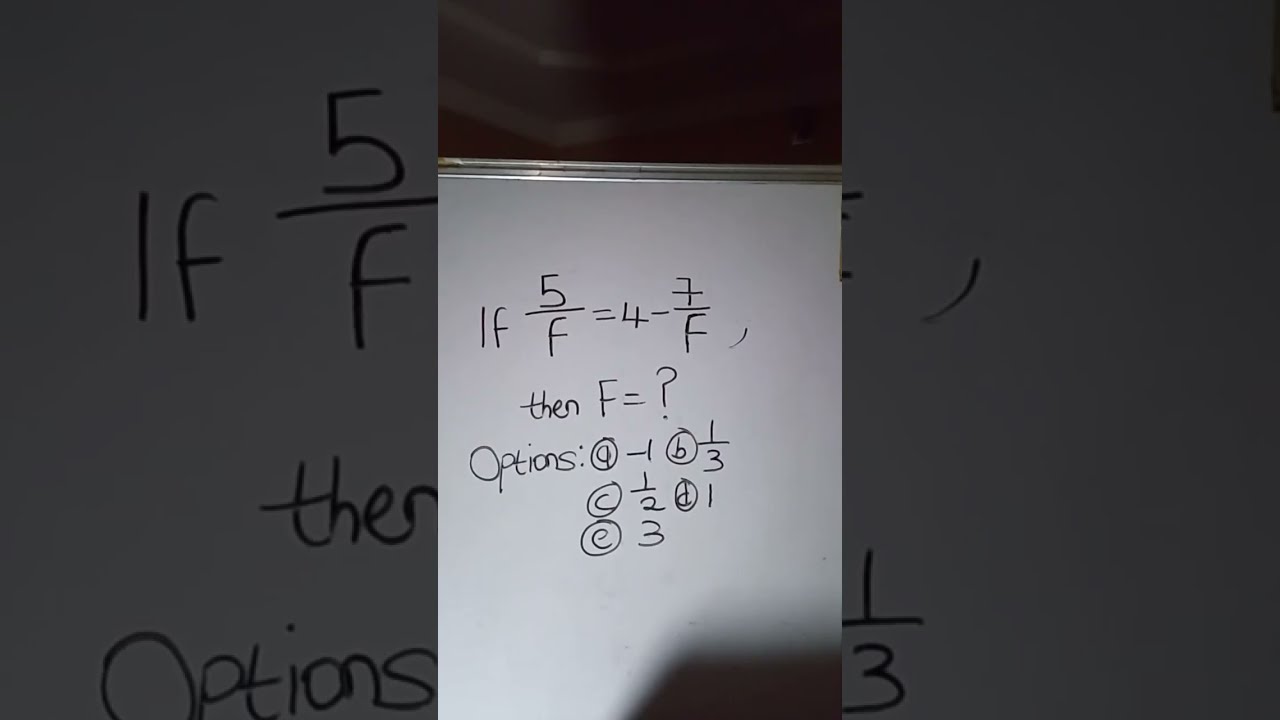 If 5/F = 4 - 7/F,
then F = ?
Options: ⓐ -1 ⓑ 1/3
ⓒ 1/2 ⓓ 1
ⓔ 3